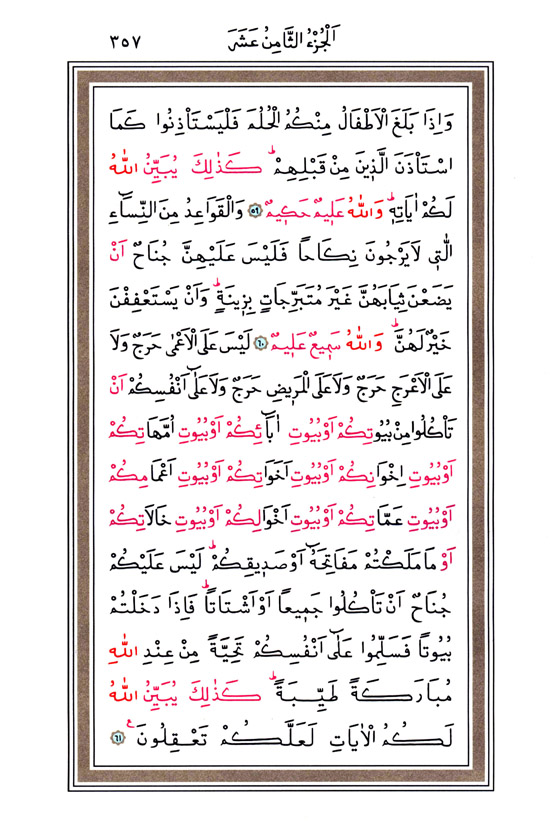 اَلْجُزْءُ الثَّامِنُ عَشَرَ
٣٥٧
وَاِذَا بَلَغَ الْاَطْفَالُ مِنْكُمُ الْحُلُمَ فَلْيَسْتَأْذِنُوا كَمَا
اسْتَأْذَنَ الَّذ۪ينَ مِنْ قَبْلِهِمْۜ كَذٰلِكَ يُبَيِّنُ اللّٰهُ
لَكُمْ اٰيَاتِه۪ۜ وَاللّٰهُ عَل۪يمٌ حَك۪يمٌ ٥٩ وَالْقَوَاعِدُ مِنَ النِّسَٓاءِ
الّٰت۪ي لَا يَرْجُونَ نِكَاحاً فَلَيْسَ عَلَيْهِنَّ جُنَاحٌ اَنْ
يَضَعْنَ ثِيَابَهُنَّ غَيْرَ مُتَبَرِّجَاتٍ بِز۪ينَةٍۜ وَاَنْ يَسْتَعْفِفْنَ
خَيْرٌ لَهُنَّۜ وَاللّٰهُ سَم۪يعٌ عَل۪يمٌ ٦٠ لَيْسَ عَلَى الْاَعْمٰى حَرَجٌ وَلَا
عَلَى الْاَعْرَجِ حَرَجٌ وَلَا عَلَى الْمَر۪يضِ حَرَجٌ وَلَا عَلٰٓى اَنْفُسِكُمْ اَنْ
تَأْكُلُوا مِنْ بُيُوتِكُمْ اَوْ بُيُوتِ اٰبَٓائِكُمْ اَوْ بُيُوتِ اُمَّهَاتِكُمْ
اَوْ بُيُوتِ اِخْوَانِكُمْ اَوْ بُيُوتِ اَخَوَاتِكُمْ اَوْ بُيُوتِ اَعْمَامِكُمْ
اَوْ بُيُوتِ عَمَّاتِكُمْ اَوْ بُيُوتِ اَخْوَالِكُمْ اَوْ بُيُوتِ خَالَاتِكُمْ
اَوْ مَا مَلَكْتُمْ مَفَاتِحَهُٓ اَوْ صَد۪يقِكُمْۜ لَيْسَ عَلَيْكُمْ
جُنَاحٌ اَنْ تَأْكُلُوا جَم۪يعاً اَوْ اَشْتَاتاًۜ فَاِذَا دَخَلْتُمْ
بُيُوتاً فَسَلِّمُوا عَلٰٓى اَنْفُسِكُمْ تَحِيَّةً مِنْ عِنْدِ اللّٰهِ
مُبَارَكَةً طَيِّبَةًۜ كَذٰلِكَ يُبَيِّنُ اللّٰهُ
لَكُمُ الْاٰيَاتِ لَعَلَّكُمْ تَعْقِلُونَ ع ٦١